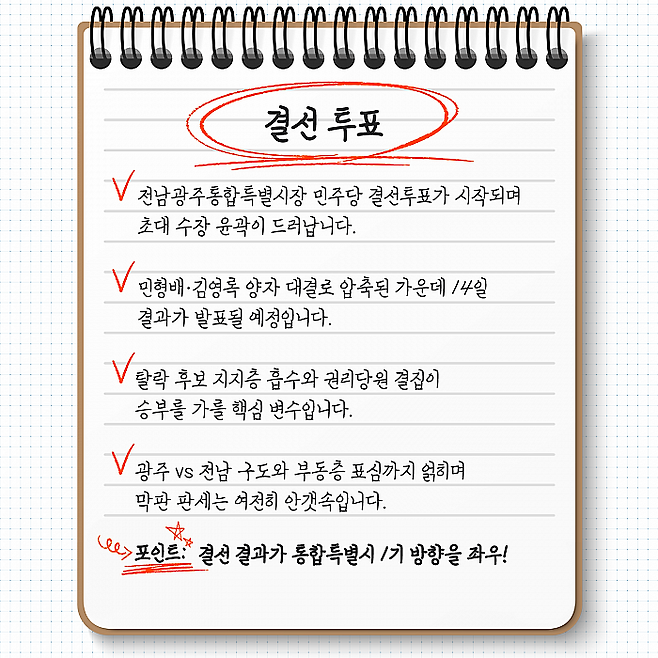 결선 투표
전남광주통합특별시장 민주당 결선투표가 시작되며
초대 수장 윤곽이 드러납니다.
민형배·김영록 양자 대결로 압축된 가운데 14일
결과가 발표될 예정입니다.
탈락 후보 지지층 흡수와 권리당원 결집이
승부를 가를 핵심 변수입니다.
광주 vs 전남 구도와 부동층 표심까지 얽히며
막판 판세는 여전히 안갯속입니다.
포인트: 결선 결과가 통합특별시 1기 방향을 좌우!